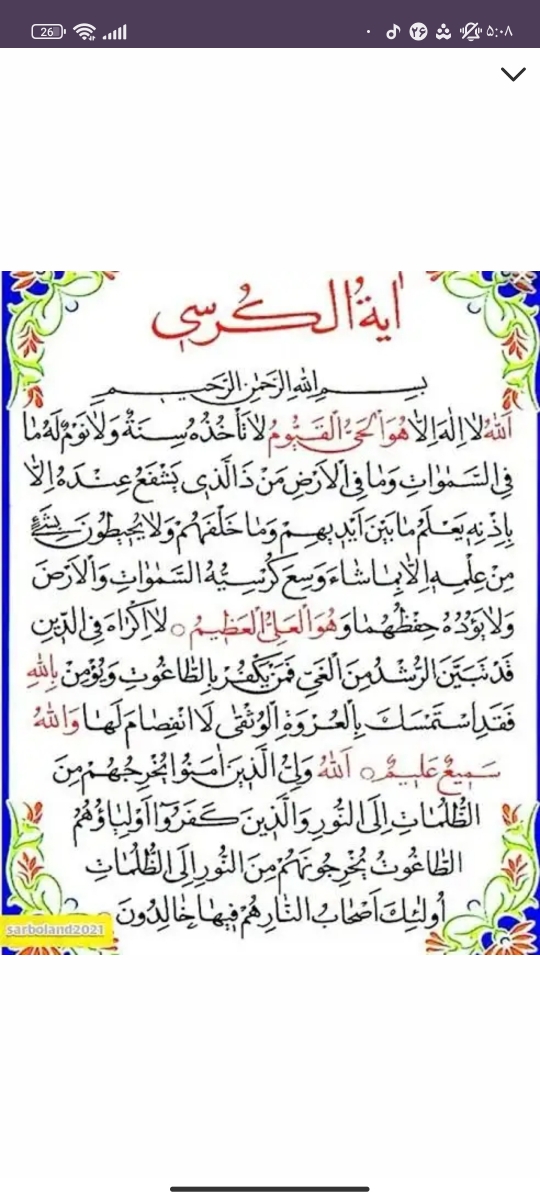 26
۲۶
۵:۰۸
اٰیةُ الکُرسی
بِسْمِ اللهِ الرَّحْمٰنِ الرَّحیمِ
اَللهُ لا اِلٰهَ اِلاّٰ هُوَ الْحَیُّ الْقَیُّومُ لا تَأْخُذُهُ سِنَةٌ وَلا نَوْمٌ لَهُ ما
فِی السَّمٰوٰاتِ وَما فِی الْاَرْضِ مَنْ ذَا الَّذی یَشْفَعُ عِنْدَهُ اِلاّٰ
بِاِذْنِهِ یَعْلَمُ ما بَیْنَ اَیْدیهِمْ وَما خَلْفَهُمْ وَلا یُحیطُونَ بِشَیْءٍ
مِنْ عِلْمِهِ اِلاّٰ بِما شاءَ وَسِعَ کُرْسِیُّهُ السَّمٰوٰاتِ وَالْاَرْضَ
وَلا یَؤُدُهُ حِفْظُهُما وَ هُوَ الْعَلِیُّ الْعَظیمُ ○ لا اِکْراهَ فِی الدّینِ
قَدْ تَبَیَّنَ الرُّشْدُ مِنَ الْغَیِّ فَمَنْ یَکْفُرْ بِالطّاغُوتِ وَیُؤْمِنْ بِاللهِ
فَقَدِ اسْتَمْسَكَ بِالْعُرْوَةِ الْوُثْقٰی لَا انْفِصامَ لَها وَاللهُ
سَمیعٌ عَلیمٌ ○ اَللهُ وَلِیُّ الَّذینَ اٰمَنُوا یُخْرِجُهُمْ مِنَ
الظُّلُمٰاتِ اِلَی النُّورِ وَالَّذینَ کَفَرُوا اَوْلِیٰاؤُهُمُ
الطّاغُوتُ یُخْرِجُونَهُمْ مِنَ النُّورِ اِلَی الظُّلُمٰاتِ
اُولٰئِكَ اَصْحابُ النّارِ هُمْ فیها خالِدُونَ
sarboland2021